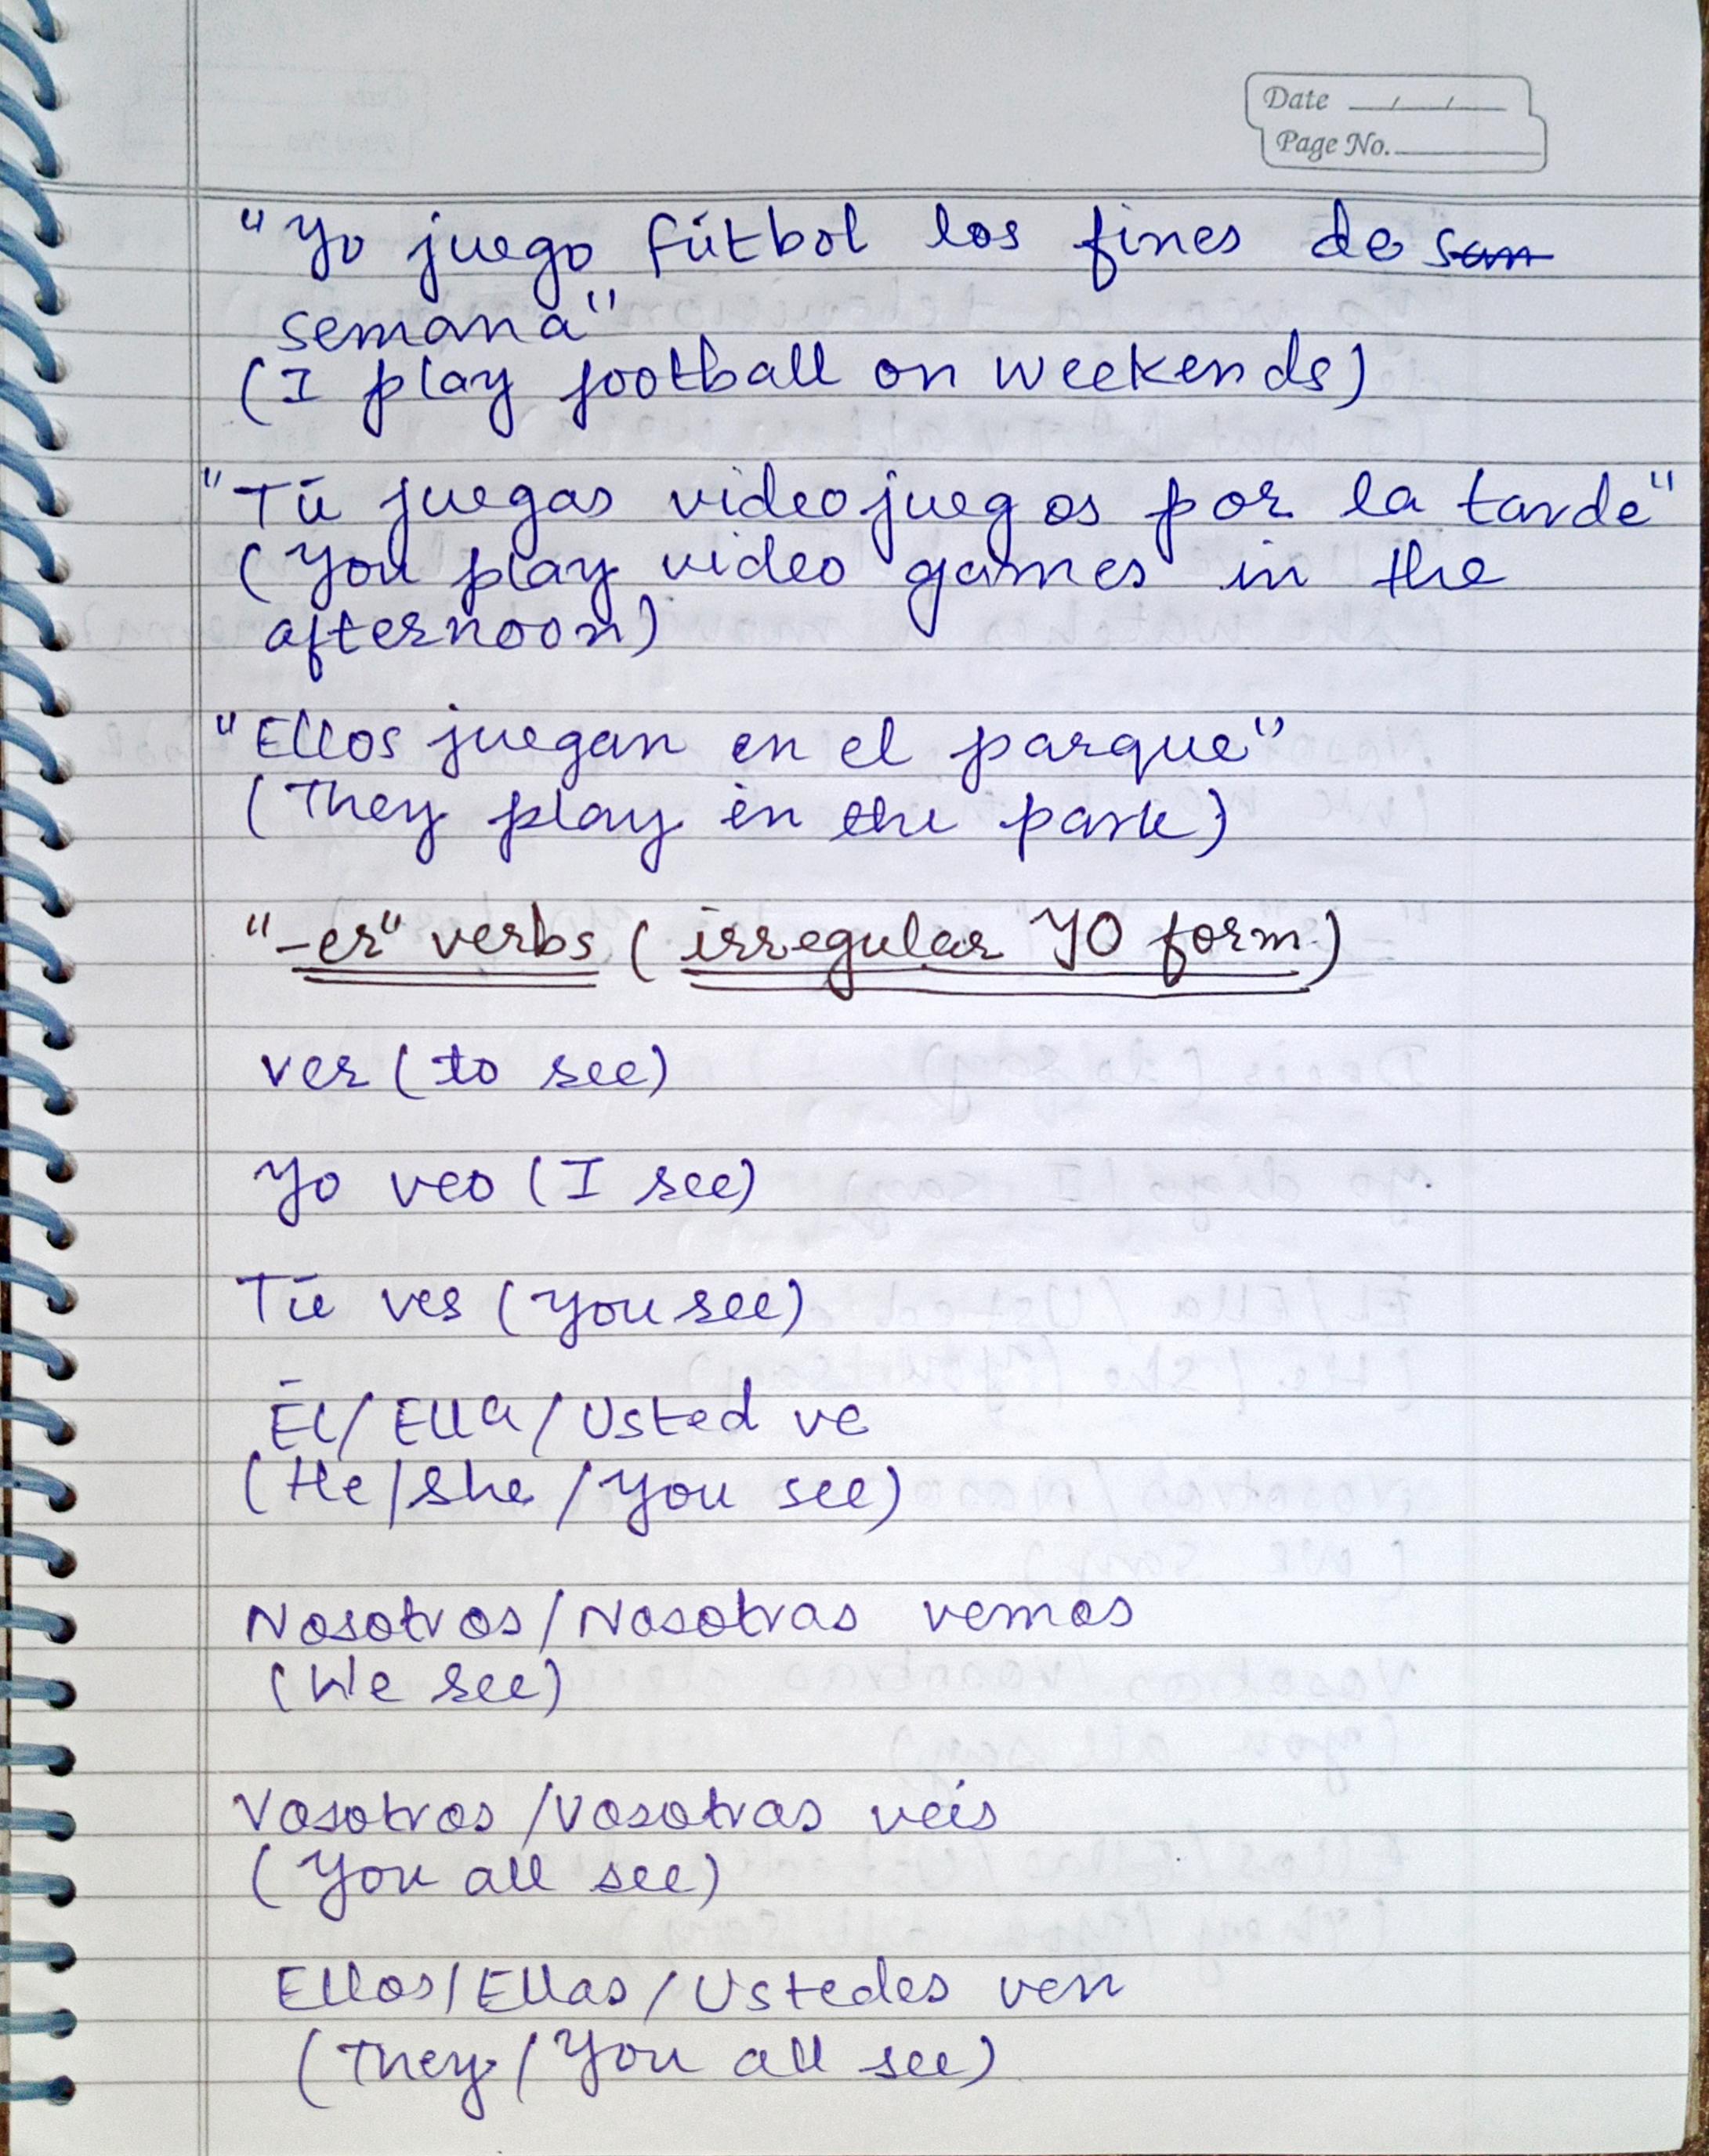 Date __/__/__
Page No. ______
"Yo juego fútbol los fines de sam
semana"
(I play football on weekends)
"Tú juegas videojuegos por la tarde"
(You play video games in the
afternoon)
"Ellos juegan en el parque"
(They play in the park)
"-er" verbs (irregular YO form)
ver (to see)
Yo veo (I see)
Tú ves (you see)
Él/Ella/Usted ve
(He/She/You see)
Nosotros/Nosotras vemos
(We see)
Vosotros/Vosotras veis
(You all see)
Ellos/Ellas/Ustedes ven
(They/You all see)